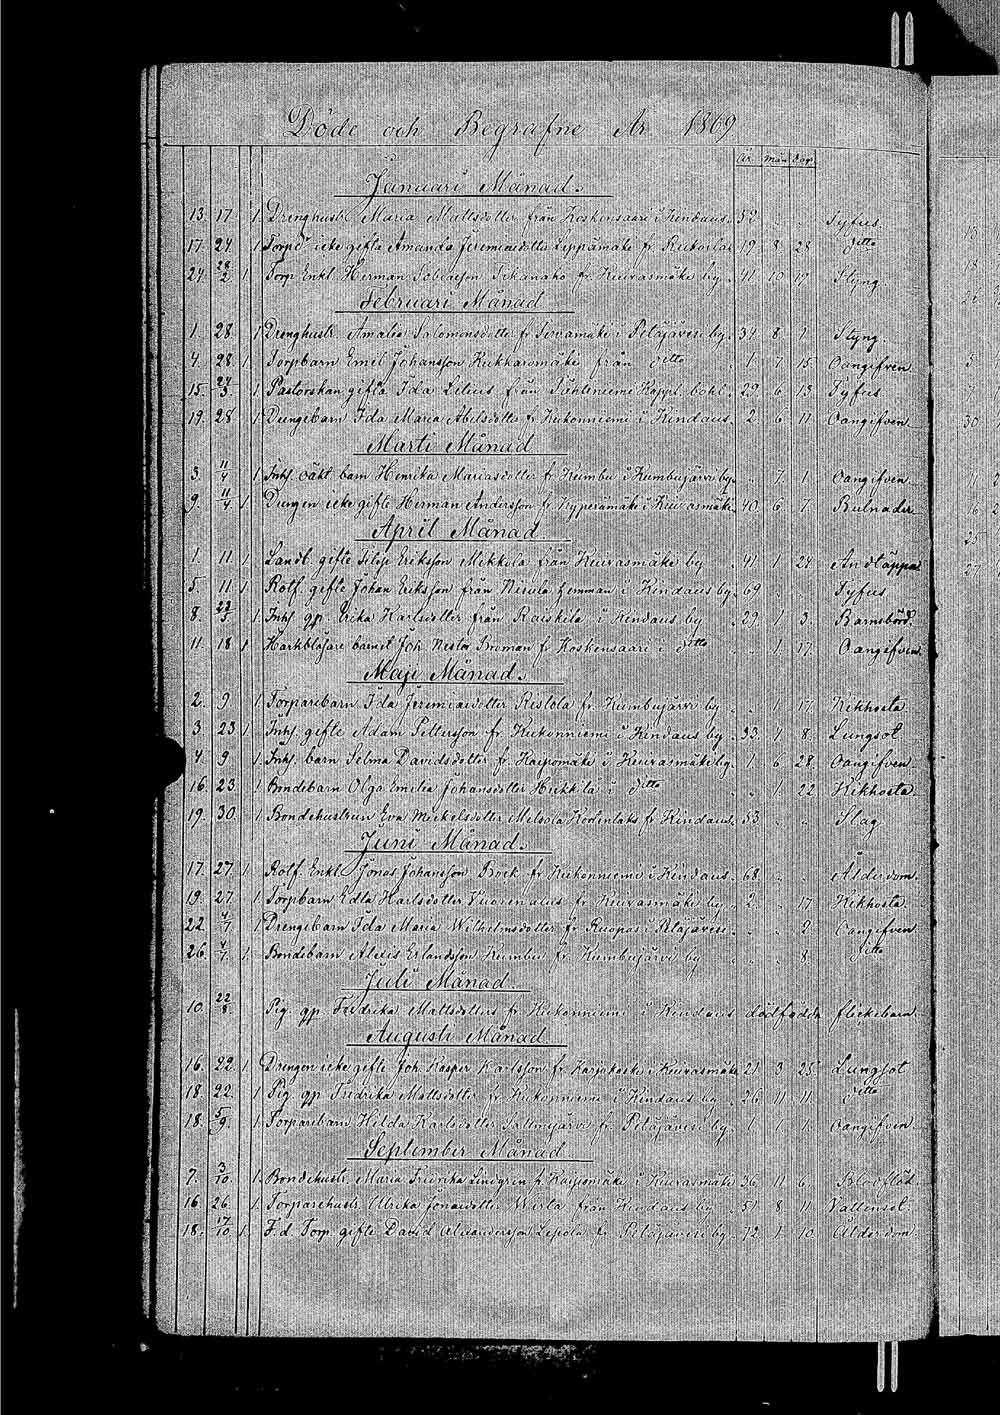 Döde och Begrafne År 1869
År. mån. dag.
Januari Månad.
13. 17. 1. Drenghustr. Maria Mattsdotter från Koskensaari i Kindaus. 52. Tyfus.
17. 24. 1 Torpd. icke gifta Amanda Jeremiasdotter Leppämäke fr. 19. 8. 28. ditto
24. 28/2. 1. Torp. Enkl. Herman fr. Keuvasmäke by. 41. 10. 17. Styng.
Februari Månad
1. 28. 1 Drenghustr. Amalia Salomonsdotter fr. i Petäjävesi by. 34. 8. 1. Styng.
4. 28. 1. Torpbarn Emil Johansson Kukkaromäke från ditto 1. 7. 15. Oangifven.
15. 27/3. 1. Pastorskan gifta Ida Lilius från Kappel. bohl. 29. 6. 13. Tyfus
19. 28 1. Drengebarn Ida Maria Abelsdotter fr. Kukonniemi i Kindaus. 2. 6. 11. Oangifven.
Marti Månad
3. 11/4 1. Inhs. oäkt barn Henrika Mariasdotter fr. Kumbu i Kumbujärvi by. 7. 1. Oangifven.
9. 11/4. 1. Drengen icke gifte Herman Andersson fr. Kyperämäke i Keuvasmäke. 40. 6. 7. Bulnader.
April Månad
1. 11. 1. Landb. gifte Filip Eriksson Mikkola från Keuvasmäke by 41. 1. 24. Andtäppa
5. 11. 1 Rotf. gifte Johan Eriksson från Nisula hemman i Kindaus by. 69. Tyfus
8. 23/5 1. Inhs. qp. Erika Karlsdotter från Raiskila i Kindaus by 29. 1. 3. Barnsbörd.
11. 18. 1. Harkblåsare barnet Joh. Nestor Broman fr. Koskensaari i ditto 1. 17. Oangifven.
Maji Månad.
2. 9. 1. Torparebarn Ida Jeremiasdotter Ristola fr. Kumbujärvi by 1. 17. Kikhosta
3. 23. 1. Inhs. gifte Adam Pettersson fr. Kukonniemi i Kindaus by. 33. 1. 8. Lungsot.
4. 9 1. Inhs. barn Selma Davidsdotter fr. Haijsomäke i Keuvasmäke by. 1. 6. 28. Oangifven
16. 23. 1. Bondebarn Olga Emilia Johansdotter Heikkilä i ditto 1. 22. Kikhosta.
19. 30. 1. Bondehustrun Eva Mickelsdotter fr. Kindaus. 53. Slag
Juni Månad.
17. 27. 1. Rotf. Enkl. Jonas Johansson Bock fr. Kukonniemi i Kindaus. 68. Ålderdom.
19. 27. 1. Torpbarn Edla Karlsdotter Vuorenalus fr. Keuvasmäke by. 2. 17. Kikhosta
22. 4/7 1 Drengebarn Ida Maria Wilhelmsdotter fr. Ruopas i Petäjävesi. 2. Oangifven
26. 4/7. 1. Bondebarn Alexis Erlandsson Kumbu fr. Kumbujärvi by 8. ditto
Juli Månad.
10. 22/8. Pig. qp. Fredrika Mattsdotters fr. Kukonniemi i Kindaus dödfödde flickebarn.
Augusti Månad.
16. 22. 1. Drengen icke gifte Joh. Kasper Karlsson fr. Karjokoski i Keuvasmäke 21 3. 25. Lungsot
18. 22. 1. Pig. qp. Fredrika Mattsdotter fr. Kukonniemi i Kindaus by 26 11. 11. ditto
18. 5/9. 1. Torparebarn Hilda Karlsdotter fr. Petäjävesi by. 1 1 1. Oangifven.
September Månad
7. 3/10. 1. Bondehustr. Maria Fredrika Lindgren fr. Haijsomäke i Keuvasmäke 36 11 6. Blodflöd.
16. 26 1. Torparehustr. Ulrika Jonasdotter från Kindaus by 51 8 11 Vattensot.
18. 17/10. 1. F.d. Torp. gifte David Alexandersson Lepola fr. Petäjävesi by. 72 1. 10. Ålderdom.